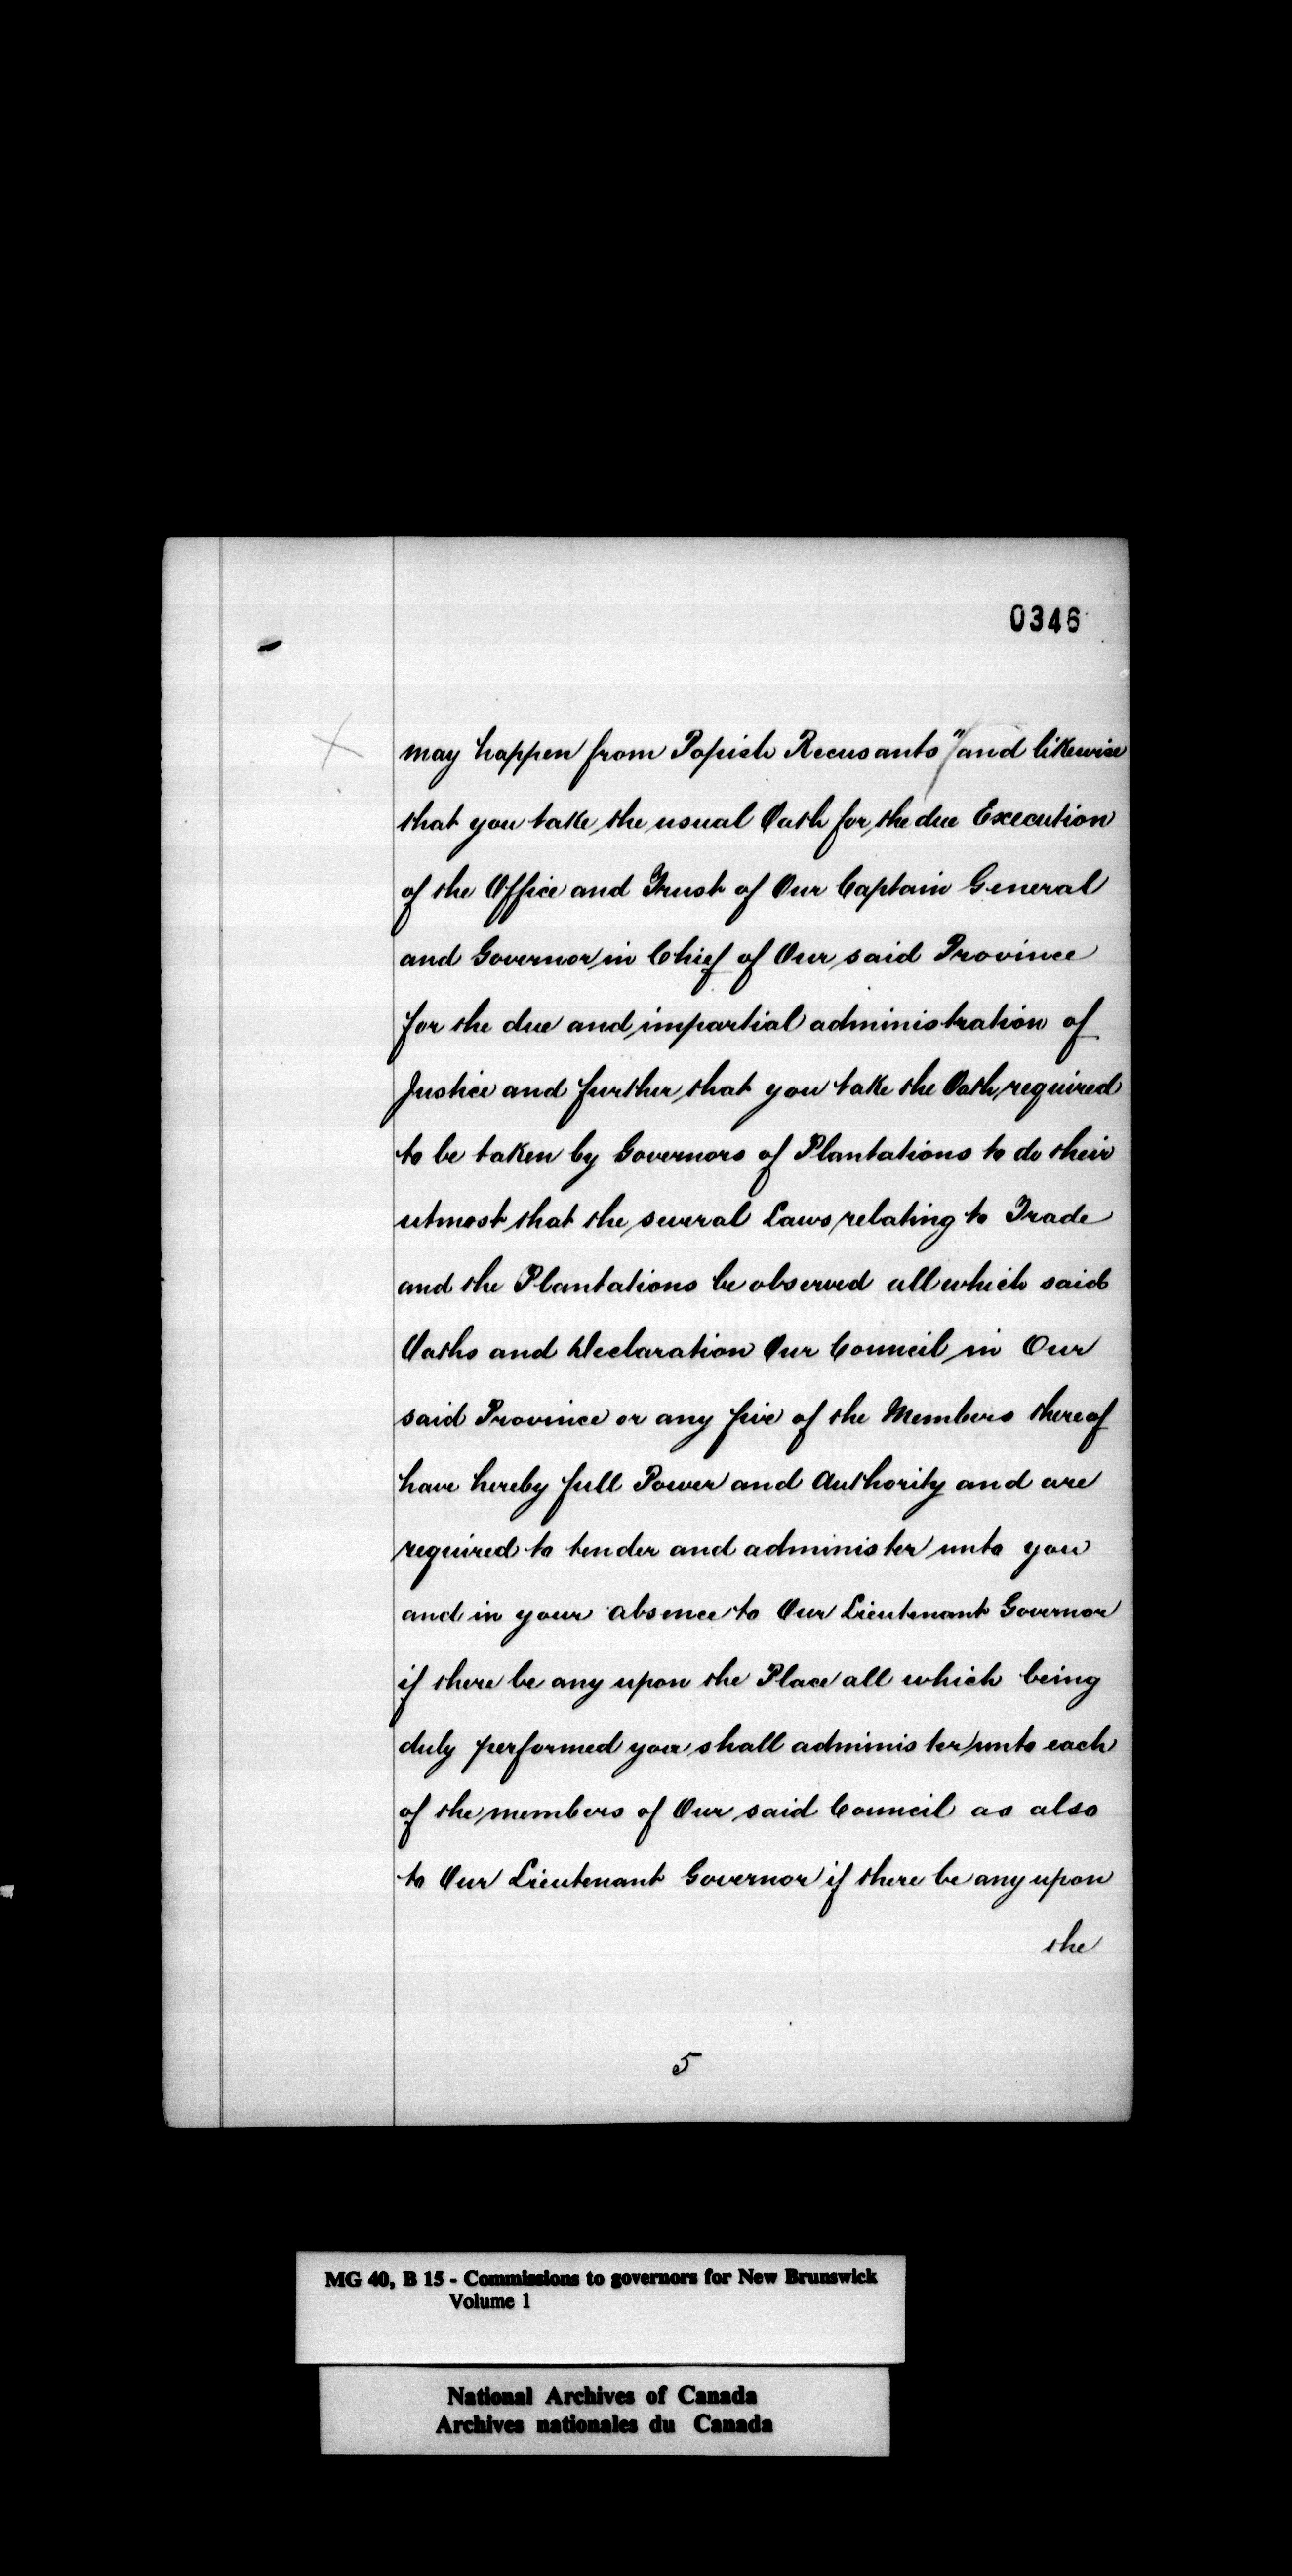 0346
may happen from Popish Recusants" and likewise
that you take the usual Oath for the due Execution
of the Office and Trust of Our Captain General
and Governor in Chief of Our said Province
for the due and impartial administration of
Justice and further that you take the Oath required
to be taken by Governors of Plantations to do their
utmost that the several Laws relating to Trade
and the Plantations be observed all which said
Oaths and Declaration Our Council in Our
said Province or any five of the Members thereof
have hereby full Power and Authority and are
required to tender and administer unto you
and in your absence to Our Lieutenant Governor
if there be any upon the Place all which being
duly performed you shall administer unto each
of the members of Our said Council as also
to Our Lieutenant Governor if there be any upon
the
5
MG 40, B 15 - Commissions to governors for New Brunswick
Volume 1
National Archives of Canada
Archives nationales du Canada